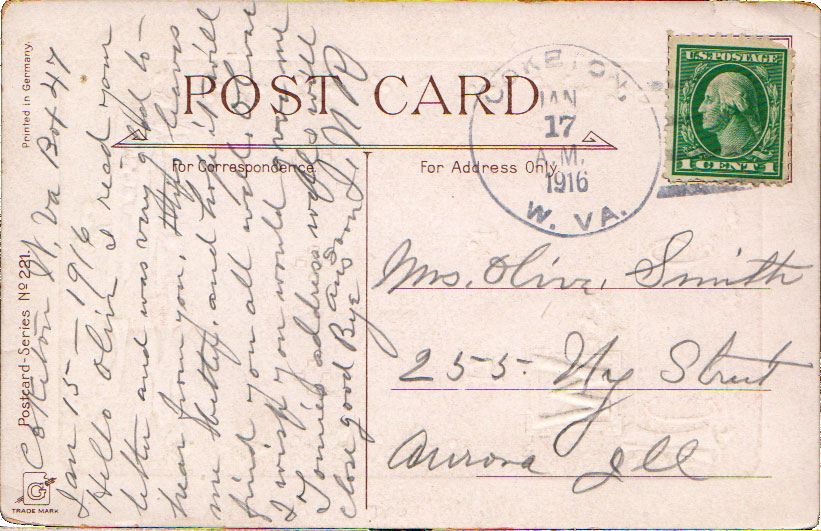 Printed in Germany.
Postcard-Series No 221.
TRADE MARK
POST CARD
For Correspondence.
For Address Only.
COKETON,
JAN
17
A.M.
1916
W. VA.
U.S. POSTAGE
1 CENT 1
Mrs. Olive. Smith
255- Ny Street
Aurora Ill
Coketon W, Va Box 47
Jan 15 - 1916
Hello Olive I read your
letter and was very glad to-
hear from you, leaves
me and hope it will
find you all well. Olive
I wish you would give me
Tomies address well I will
close good Bye
ans soon